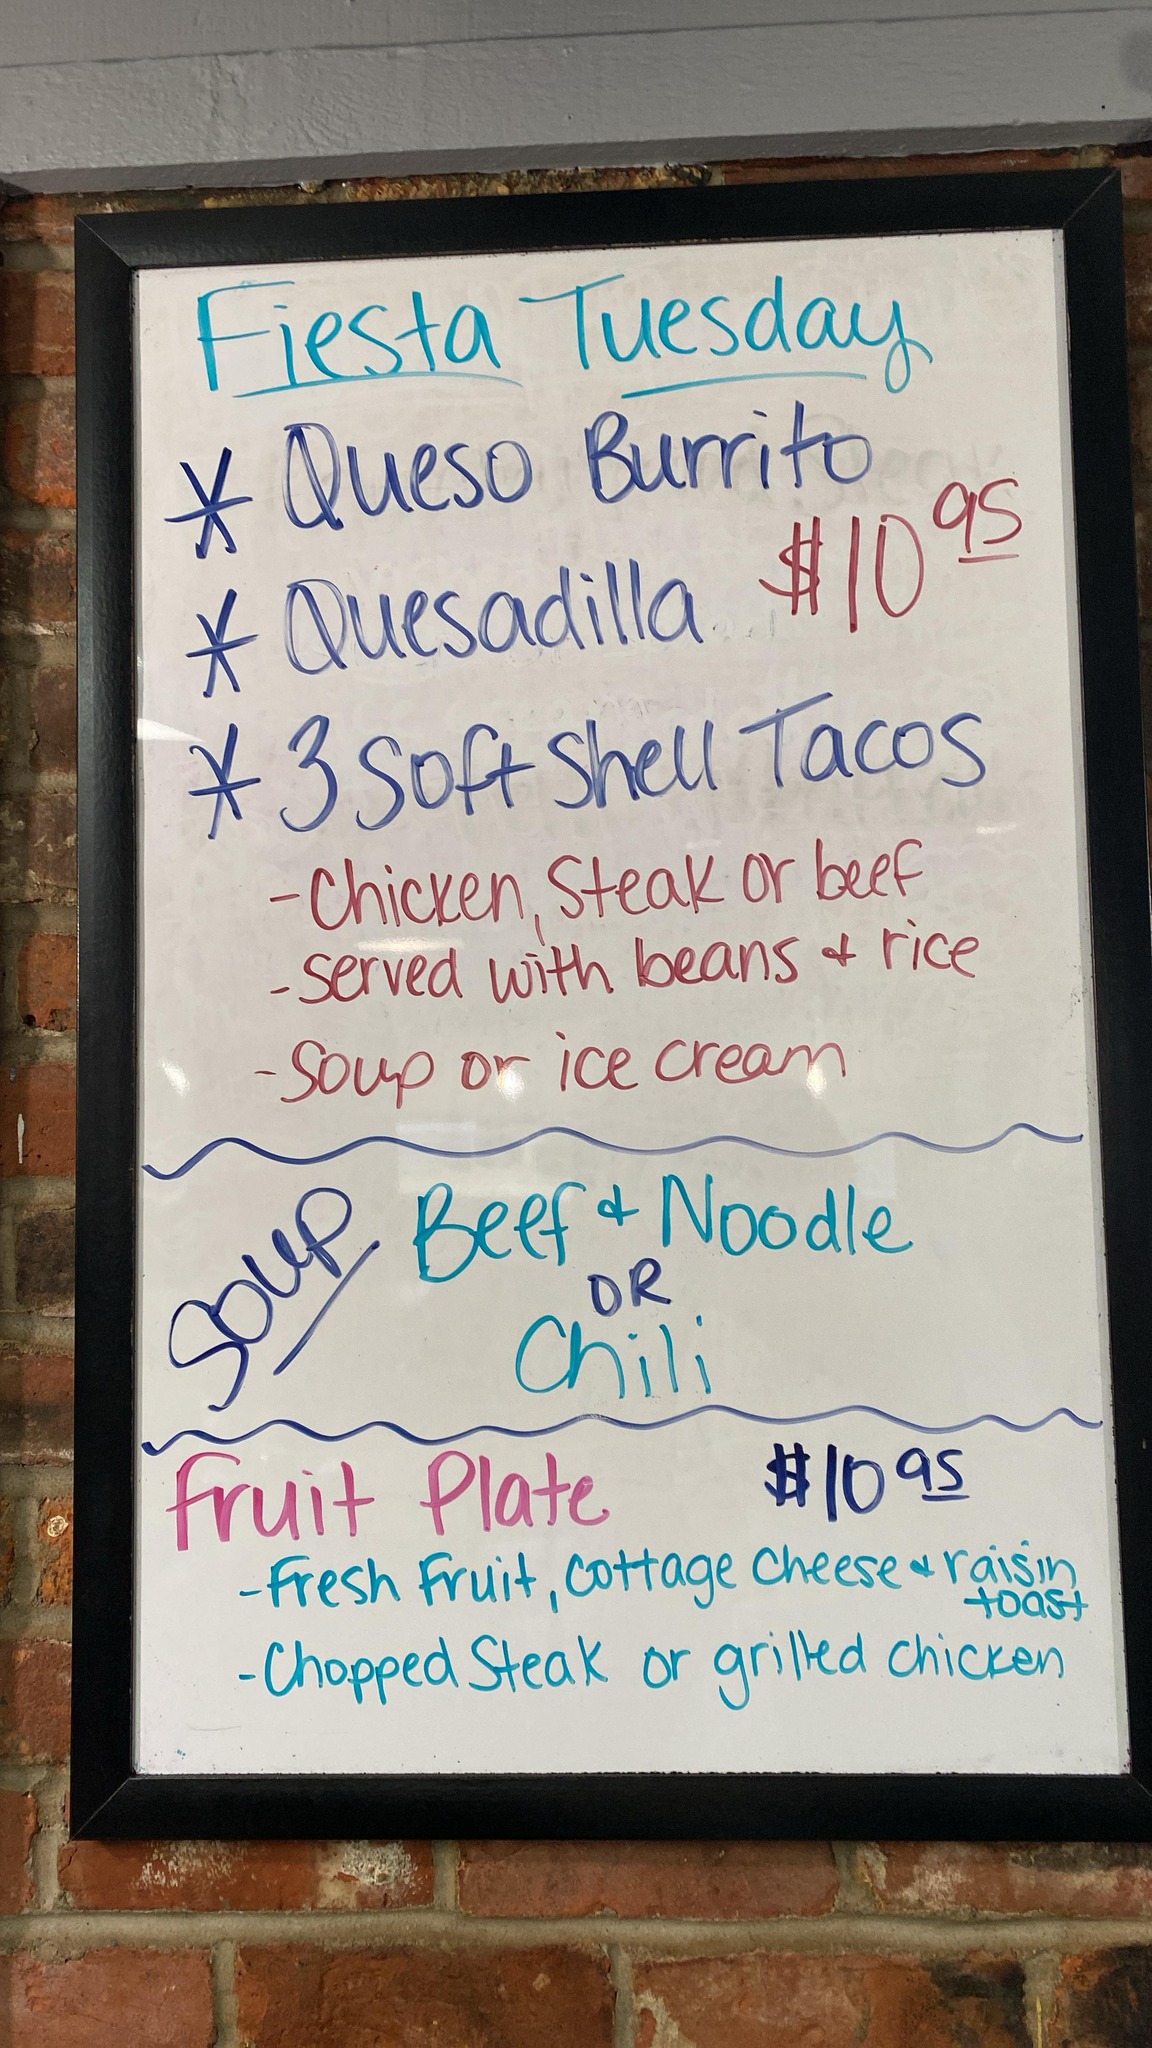 Fiesta Tuesday
* Queso Burrito
$10 95
* Quesadilla
* 3 Soft Shell Tacos
- Chicken, Steak or beef
- served with beans & rice
- Soup or ice cream
Soup
Beef & Noodle
OR
Chili
Fruit Plate $10 95
- Fresh Fruit, cottage cheese & raisin
toast
- Chopped Steak or grilled chicken